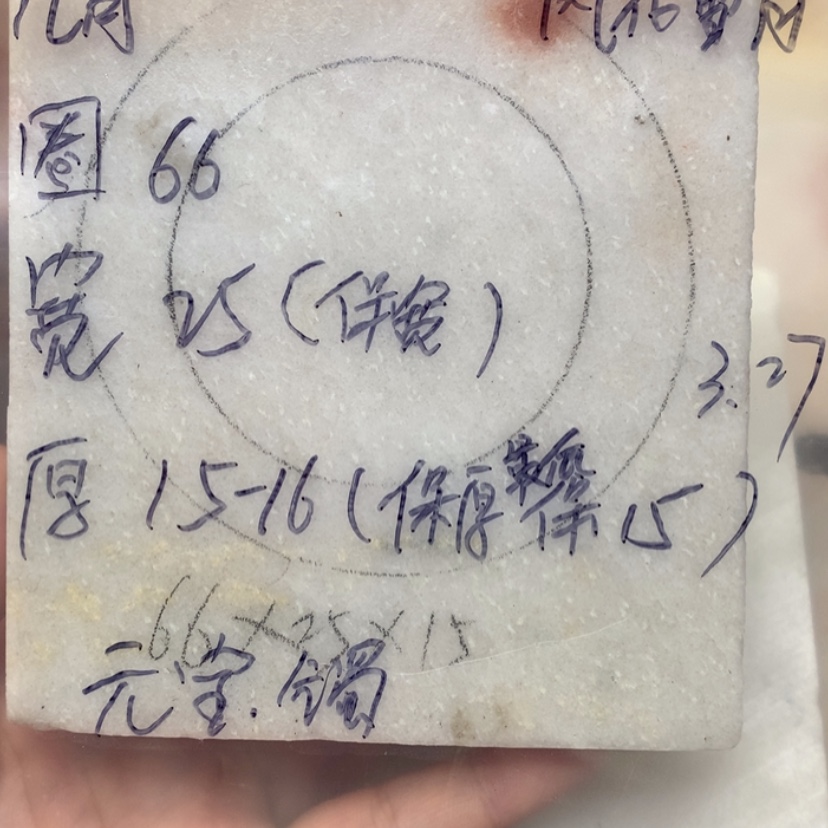 圈 66
宽 25（保宽）
3.27
厚 15-16（保厚 保 15）
66×25×15
元宝.镯